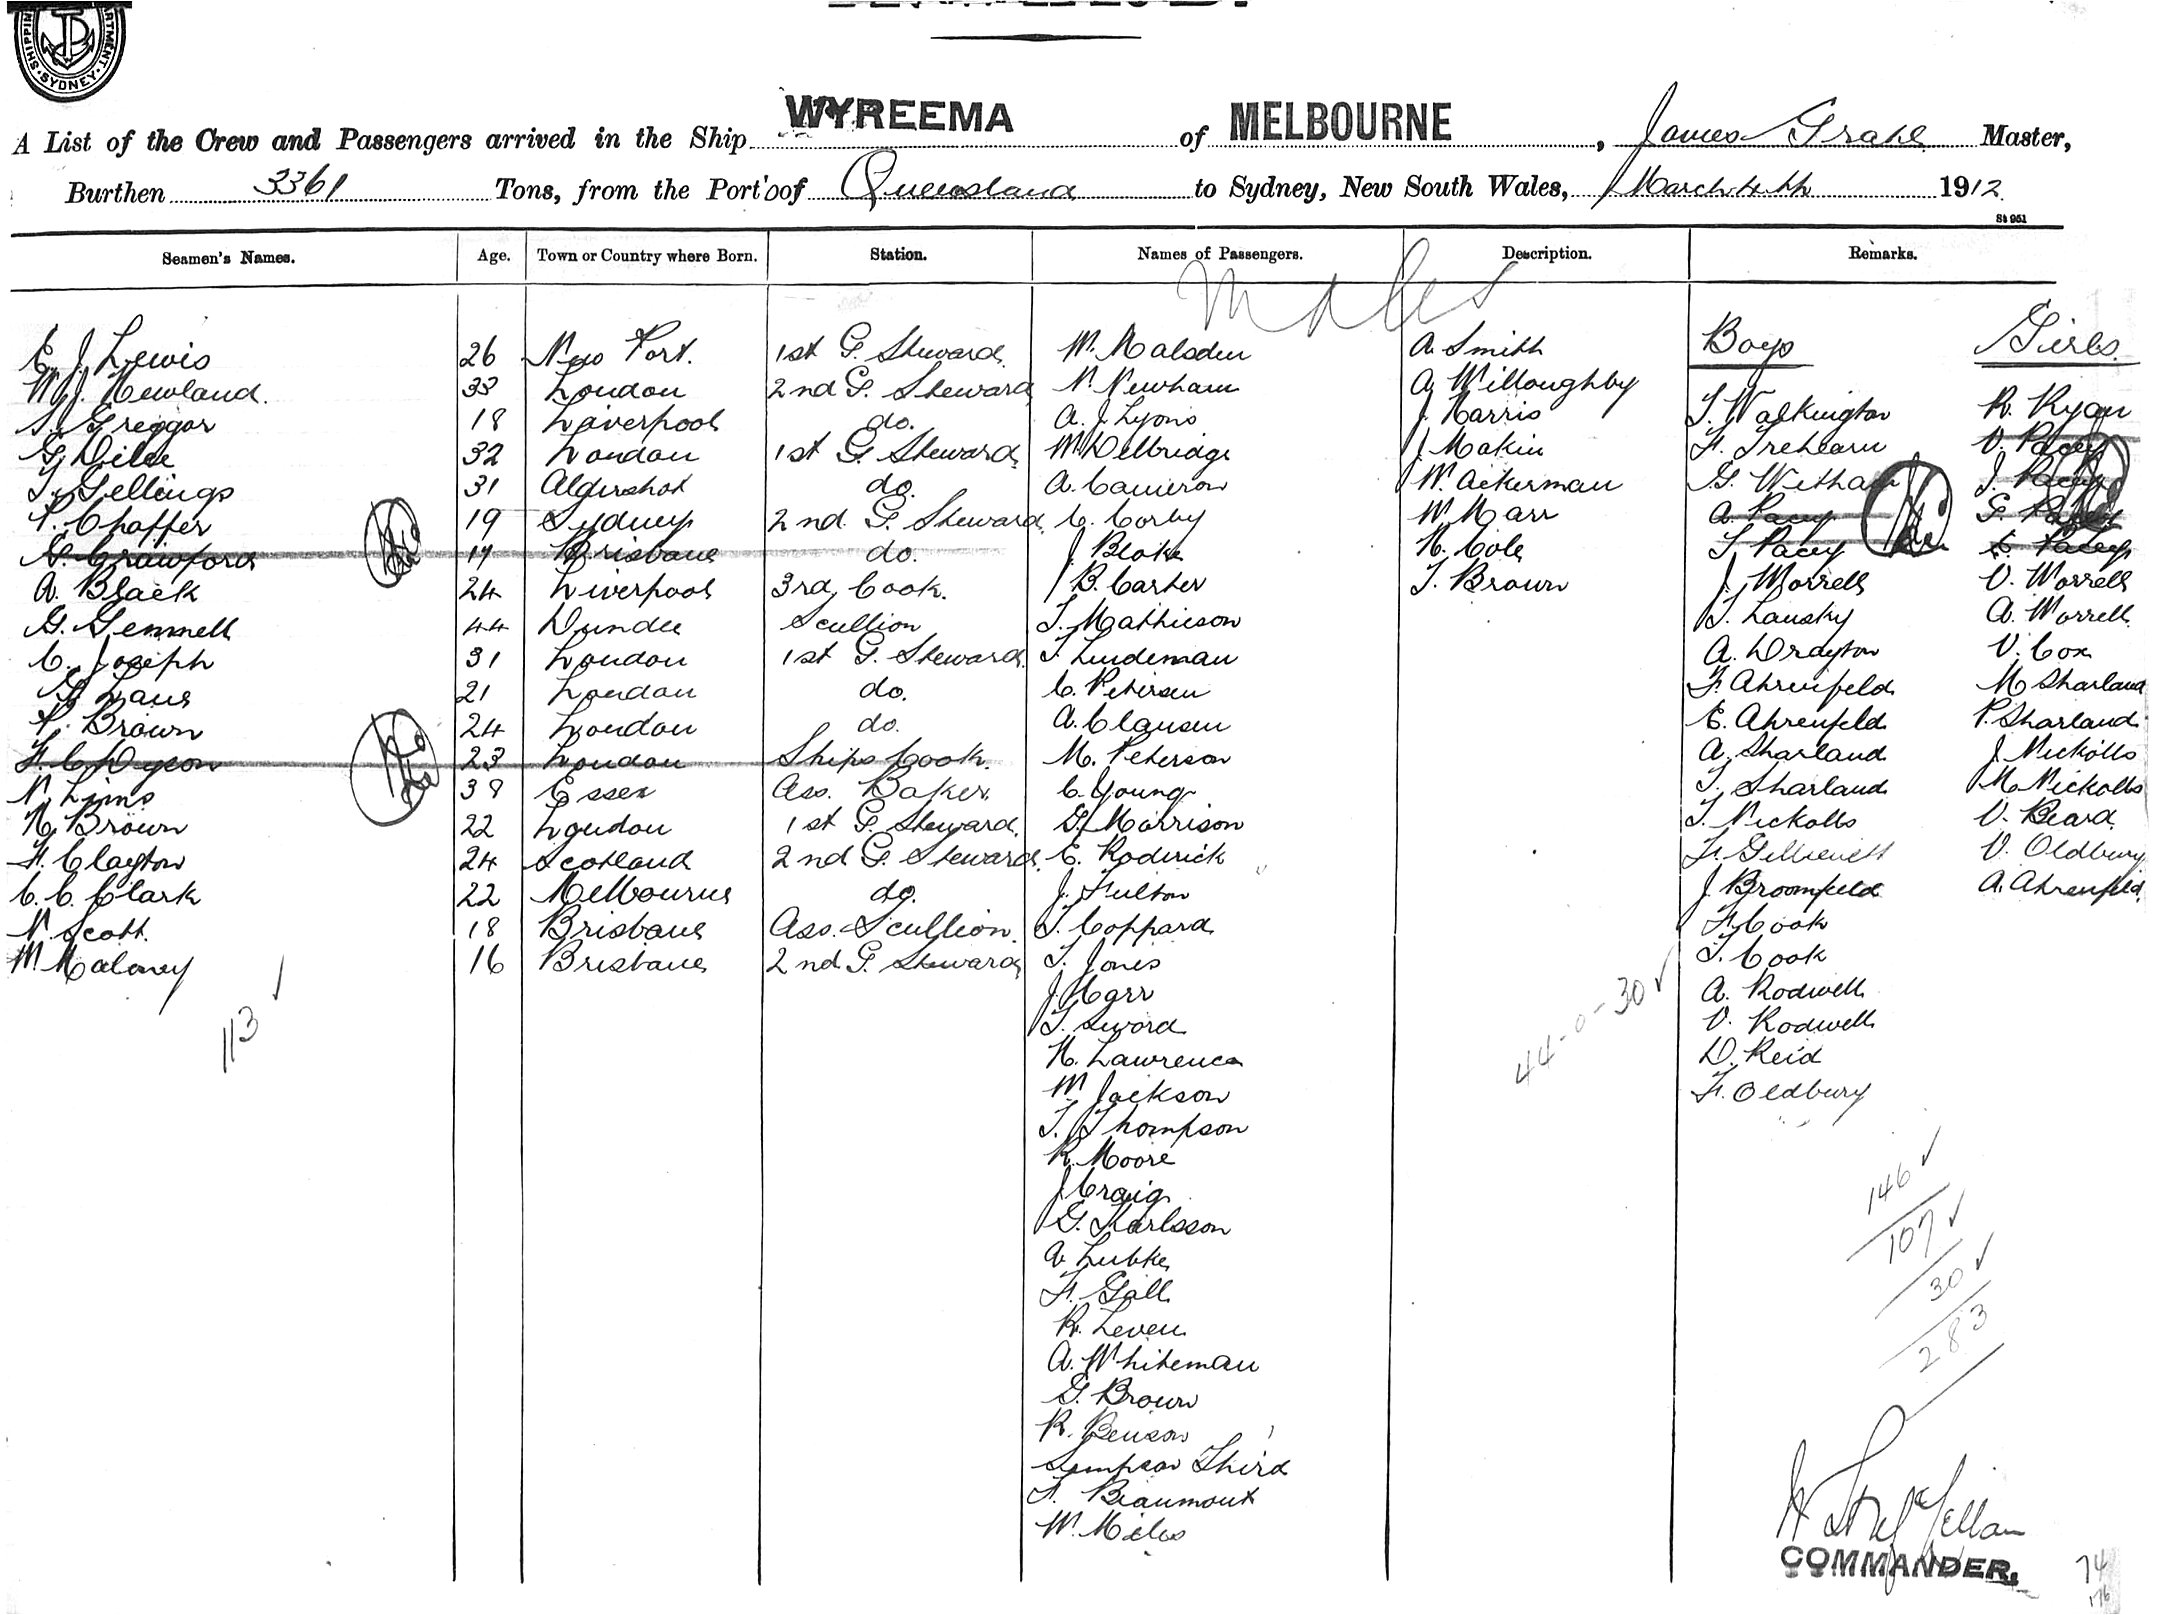 SHIPPING DEPARTMENT SYDNEY
WYREEMA MELBOURNE
A List of the Crew and Passengers arrived in the Ship WYREEMA of MELBOURNE, James Grahl Master,
Burthen 3361 Tons, from the Port of Queensland to Sydney, New South Wales, March 4th 1912.
St 951
Seamen's Names. Age. Town or Country where Born. Station. Names of Passengers. Description. Remarks.
Males
E. J. Lewis 26 New Port. 1st G. Steward. W. Malsden A. Smith Boys Girls.
W. J. Newland. 33 London 2nd G. Steward N. Newham A. Willoughby
S. Greggor 18 Liverpool do. A. J. Lyons J. Harris T. Walkington R. Ryan
G. Dilee 32 London 1st G. Steward. W. Delbridge J. Makin F. Trehearn V. Pacey
T. Gellings 31 Aldershot do. A. Cameron W. Ackerman G. Witham J. Pacey
P. Chaffer 19 Sydney 2nd G. Steward. C. Corby W. Marr A. Pacey G. Pacey
G. Crawford 17 Brisbane do. J. Blake H. Cole T. Pacey E. Pacey
A. Black 24 Liverpool 3rd Cook. J. B. Carter T. Brown J. Worrell V. Worrell
G. Gemmell 44 Dundee Scullion T. Mathieson T. Lansky A. Worrell.
C. Joseph 31 London 1st G. Steward. T. Lindeman A. Drayton V. Cox
T. Lane 21 London do. C. Petersen F. Ahrenfeld M. Sharland
P. Brown 24 London do. A. Clausen E. Ahrenfeld P. Sharland
F. C. Dyson 23 London Ships Cook. M. Peterson A. Sharland J. Nickolls
N. Lims 38 Essex Ass. Baker. C. Young T. Sharland M. Nickolls
H. Brown 22 London 1st G. Steward. D. Morrison T. Nickolls V. Beard.
F. Clayton 24 Scotland 2nd G. Steward. E. Roderick V. Oldbury
C. C. Clark 22 Melbourne do. J. Fulton J. Broomfield A. Ahrenfeld.
N. Scott. 18 Brisbane Ass. Scullion. T. Coppard F. Cook
W. Maloney 16 Brisbane 2nd G. Steward T. Jones T. Cook
113 J. Marr 44-0-30 A. Rodwell
T. Sword V. Rodwell
H. Lawrence D. Reid
W. Jackson F. Oldbury
T. Thompson
R. Moore
J. Craig
G. Karlsson
A. Lubke
F. Gall
R. Leven
A. Whiteman
G. Brown
R. Benson
Simpson Third
F. Beaumont
W. Miles
146
107
30
283
COMMANDER.
74